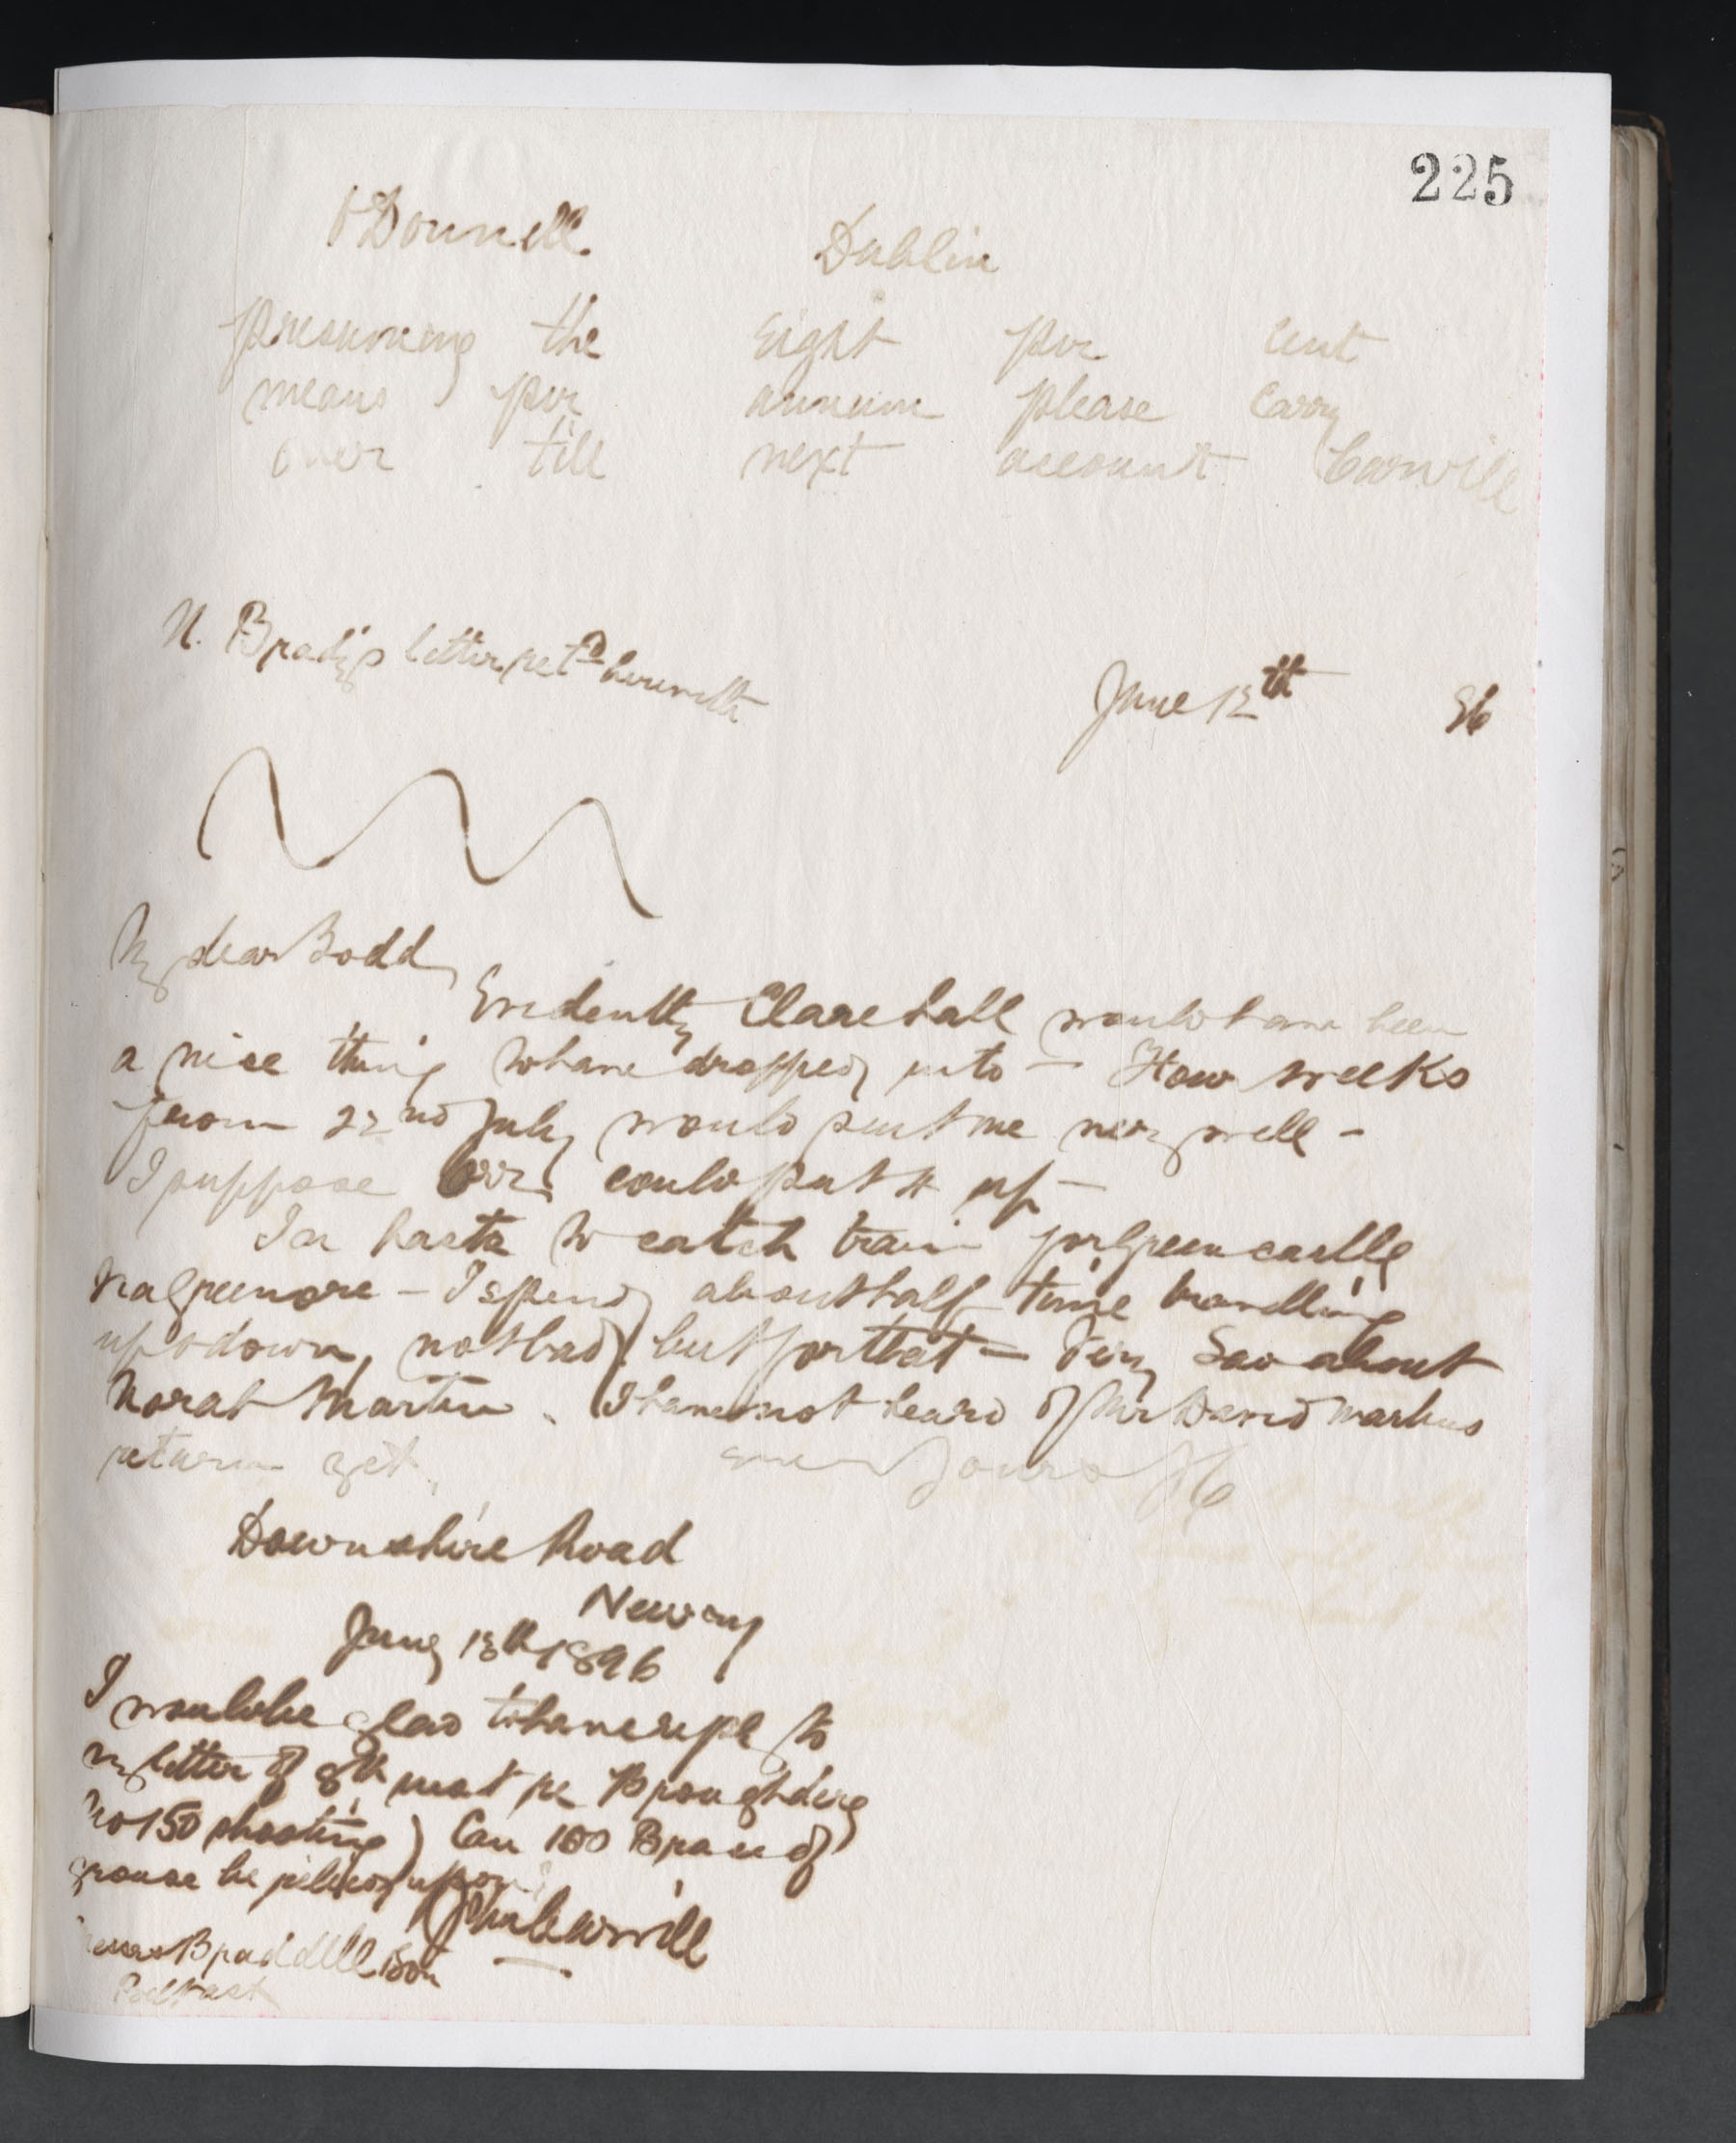 225
O'Donnell Dublin
Presuming the eight per cent
means per annum please carry
over till next account Carvill
N. Brady's letter retd herewith
June 12th 96
My dear Dodd
Evidently Clarehall would have been
a nice thing to have dropped into - Four weeks
from 22nd July would suit me very well -
I suppose Orr could put it up -
In haste to catch train for Greencastle
via Greenore - I spend about half time travelling
up & down, not bad but for that - Very Sad about
Norah Martin. I have not heard of Mr David
return yet. ever Yours JC
Downshire Road
Newry
June 13th 1896
I would be glad to have reply to
my letter of 8th inst re Broughderg
No 150 shooting) Can 100 Brace of
grouse be relied upon?
John Carvill
Messrs Braddell & Son
Belfast